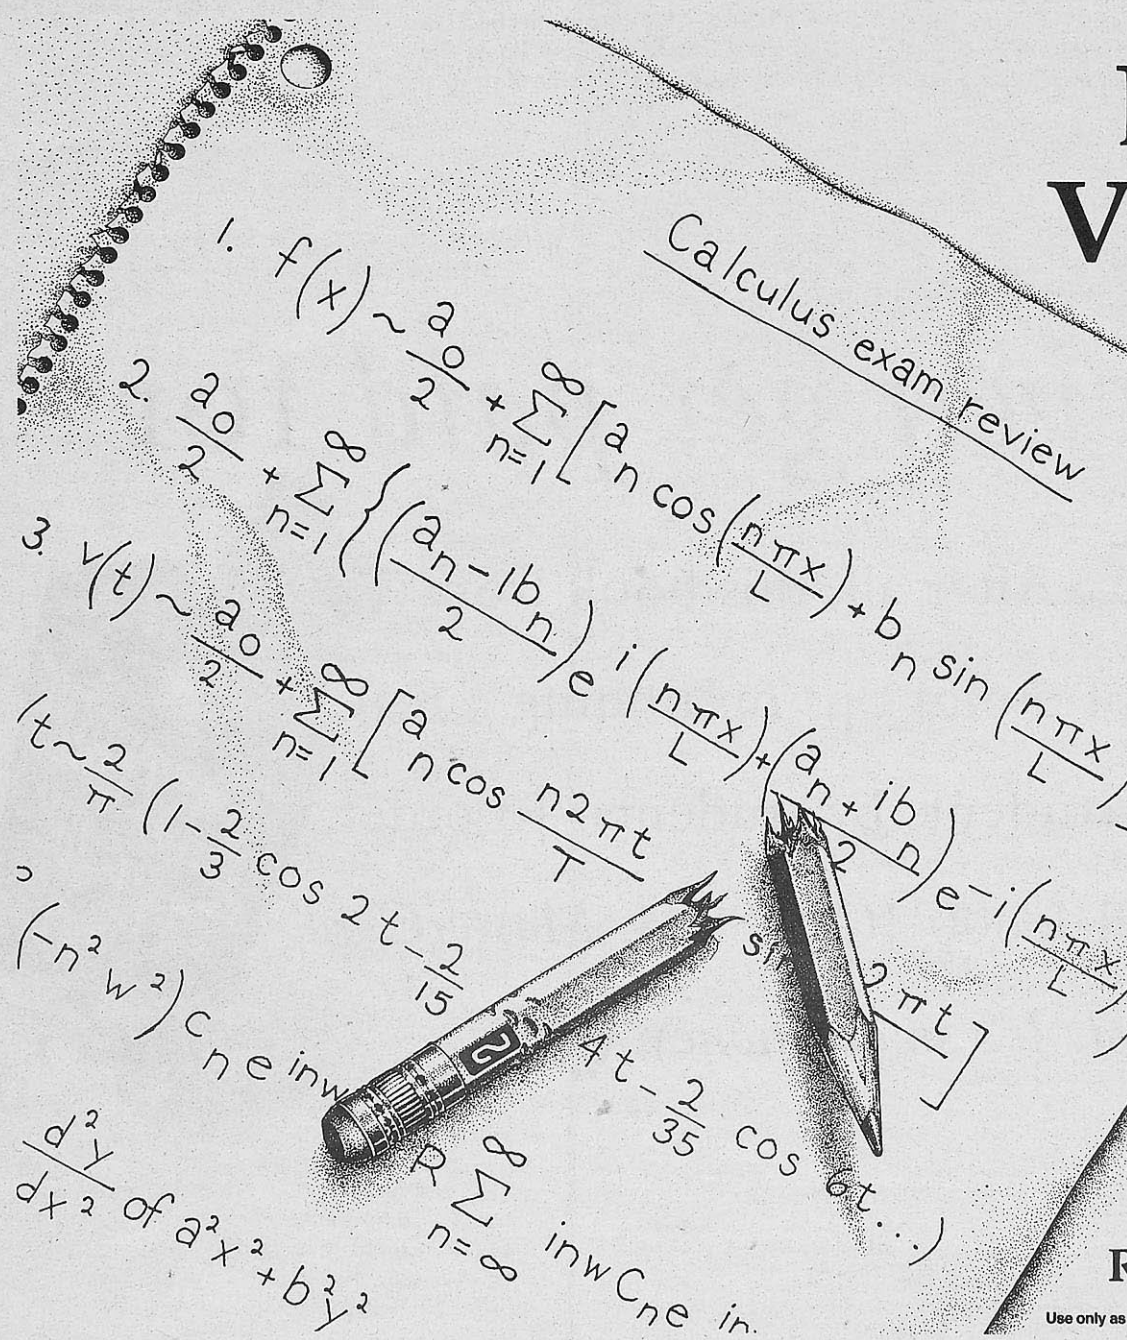 Calculus exam review
1. f(x) ~ a₀/2 + Σ n=1 ∞ [a n cos (nπx/L) + b n sin (nπx/L)
2. a₀/2 + Σ n=1 ∞ {(a n - 1b n/2) e i(nπx/L) + (a n + ib n/2) e -i(nπx/L)
3. v(t) ~ a₀/2 + Σ n=1 ∞ [a n cos n2πt/T
2πt]
(t ~ 2/π (1 - 2/3 cos 2t - 2/15
4t - 2/35 cos 6t...)
(-n² w²) c n e inw
R Σ n=∞ ∞ inw C n e in
d²y/dx² of a²x² + b²y²
V
R
Use only as
2